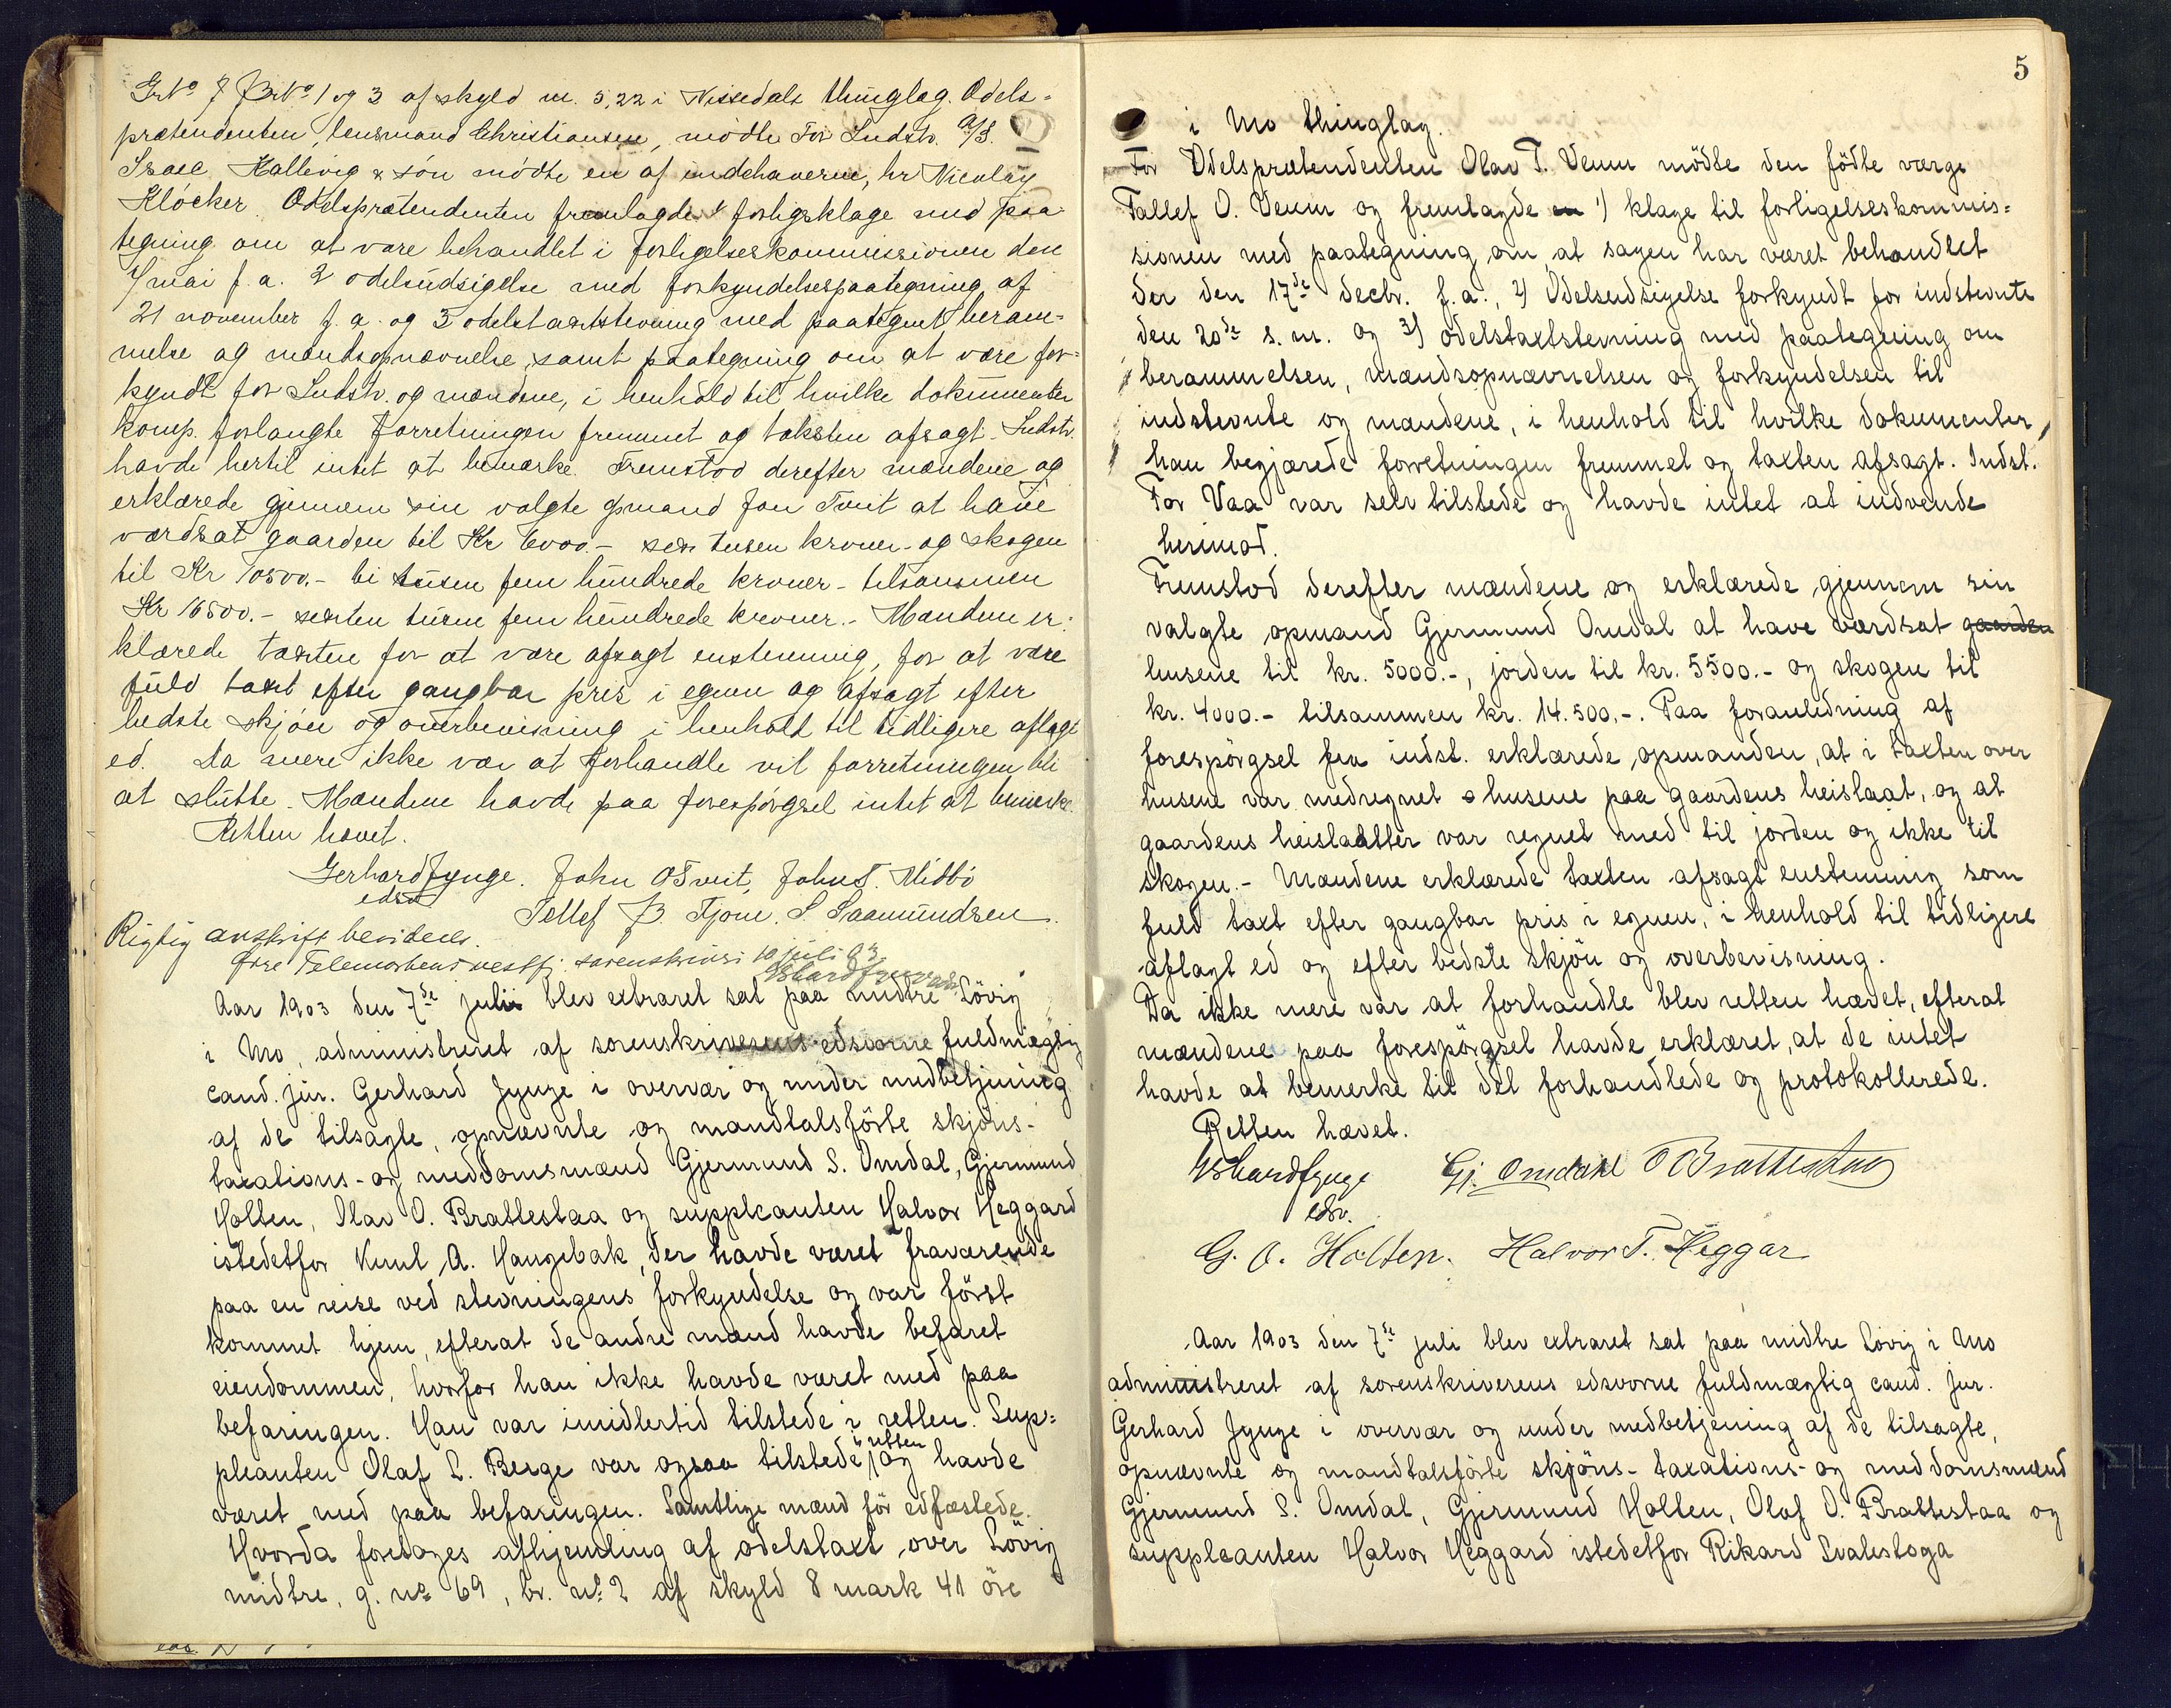 Grno 7 Brno 1 og 3 af skyld m. 5,22 i Nissedals thinglag. Odels-
prætendenten, lensmand Christiansen, mødte. For Indstv. A/S.
Isaac Kallevig & søn mødte en af indehaverne, hr Nicolay
Kløcker. Odelsprætendenten fremlagde 1 forligsklage med paa-
tegning om at være behandlet i forligelseskommissionen den
4 mai f. a. 2 odelsudsigelse med forkyndelsespaategning af
21 november f. a. og 3 odelstaxtstevning med paategnet beram-
melse og mændsopnævnelse, samt paategning om at være for-
kyndt for Indstv. og mændene, i henhold til hvilke dokumenter
komp. forlangte forretningen fremmet og taksten afsagt. Indstv.
havde hertil intet at bemærke. Fremstod derefter mændene og
erklærede gjennem sin valgte opmand Jon Tveit at have
værdsat gaarden til Kr 6000.- sex tusen kroner - og skogen
til Kr 10500.- ti tusen fem hundrede kroner - tilsammen
Kr 16500.- sexten tusen fem hundrede kroner. - Mændene er-
klærede taxten for at være afsagt enstemmig, for at være
fuld taxt efter gangbar pris i egnen og afsagt efter
bedste skjøn og overbevisning i henhold til tidligere aflagt
ed. Da mere ikke var at forhandle vil forretningen bli
at slutte. Mændene havde paa forespørgsel intet at bemerke.
Retten hævet.
Gerhard Jynge. John O Tveit, John T. Midbö
edsv
Tellef B Tjone. S. Saamundsen.
Rigtig avskrift bevidnes.
Øvre Telemarkens vestfj. sorenskriveri 10 juli 03
Gerhard Jynge
Aar 1903 den 7de juli blev extraret sat paa midtre Lövig
i Mo, administreret af sorenskriverens edsvorne fuldmægtig
cand. jur. Gerhard Jynge i overvær og under medbetjening
af de tilsagte, opnævnte og mandtalsförte skjöns-
taxations- og meddomsmænd Gjermund S. Omdal, Gjermund
Holten, Olav O. Brattestaa og suppleanten Halvor Heggard
istedetfor Knut A. Haugebak, der havde været fraværende
paa en reise ved stevningens forkyndelse og var först
kommet hjem, efterat de andre mænd havde befaret
eiendommen, hvorfor han ikke havde været med paa
befaringen. Han var imidlertid tilstede i retten. Sup-
i retten
pleanten Olaf L. Berge var ogsaa tilstede og havde
været med paa befaringen. Samtlige mænd för edfæstede.
Hvorda foretoges afhjemling af odelstaxt over Lövig
midtre, g. no 69, br. no 2 af skyld 8 mark 41 öre
5
i Mo thinglag.
For Odelsprætendenten Olav T. Venm mödte den födte værge
Tallef O. Venm og fremlagde en 1) klage til forligelseskommis-
sionen med paategning om at sagen har været behandlet
der den 17de decbr. f. a., 2) Odelsudsigelse forkyndt for indstevnte
den 20de s. m. og 3) odelstaxtstevning med paategning om
berammelsen, mændsopnævnelsen og forkyndelsen til
indstevnte og mændene, i henhold til hvilke dokumenter
han begjærede forretningen fremmet og taxten afsagt. Indst.
Tor Vaa var selv tilstede og havde intet at indvende
herimod.
Fremstod derefter mændene og erklærede gjennem sin
valgte opmand Gjermund Omdal at have værdsat gaarden
husene til kr. 5000.-, jorden til kr. 5500.- og skogen til
kr. 4000.- tilsammen kr. 14.500.-. Paa foranledning af
forespörgsel fra indst. erklærede opmanden, at i taxten over
husene var medregnet husene paa gaardens heislaat, og at
gaardens heislaatter var regnet med til jorden og ikke til
skogen. - Mændene erklærede taxten afsagt enstemmig som
fuld taxt efter gangbar pris i egnen, i henhold til tidligere
aflagt ed og efter bedste skjön og overbevisning.
Da ikke mere var at forhandle blev retten hævet, efterat
mændene paa forespörgsel havde erklæret, at de intet
havde at bemerke til det forhandlede og protokollerede.
Retten hævet.
Gerhard Jynge Gj. Omdahl O Brattestaa
edsv.
G. O. Holten. Halvor T. Heggar
Aar 1903 den 7de juli blev extraret sat paa midtre Lövig i Mo
administreret af sorenskriverens edsvorne fuldmægtig cand. jur.
Gerhard Jynge i overvær og under medbetjening af de tilsagte,
opnævnte og mandtalsförte skjöns- taxations- og meddomsmænd
Gjermund S. Omdal, Gjermund Holten, Olaf O. Brattestaa og
suppleanten Halvor Heggard istedetfor Rikard Svalestoga